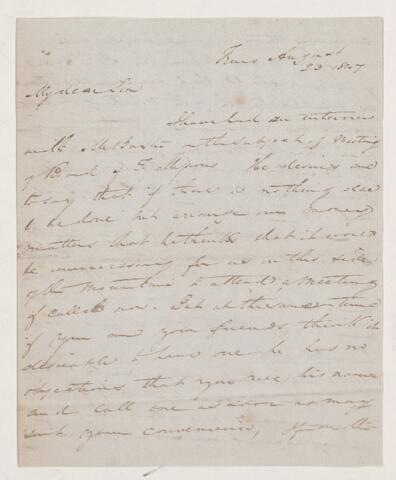 August
23 1847
My dear Sir
I have had an interview
with Mr on the subject of meeting
of Board of F. Missions He desires me
to say that if there is nothing else
to be done but arrange our money
matters that he thinks that it is not
be unnecessary for us on this side
of the Mountains to attend a meeting
if called now. But at the same time
if you and your friends think it
desirable to have one he has no
objections that you use his name
and call one as soon as may
suit your convenience, If on the